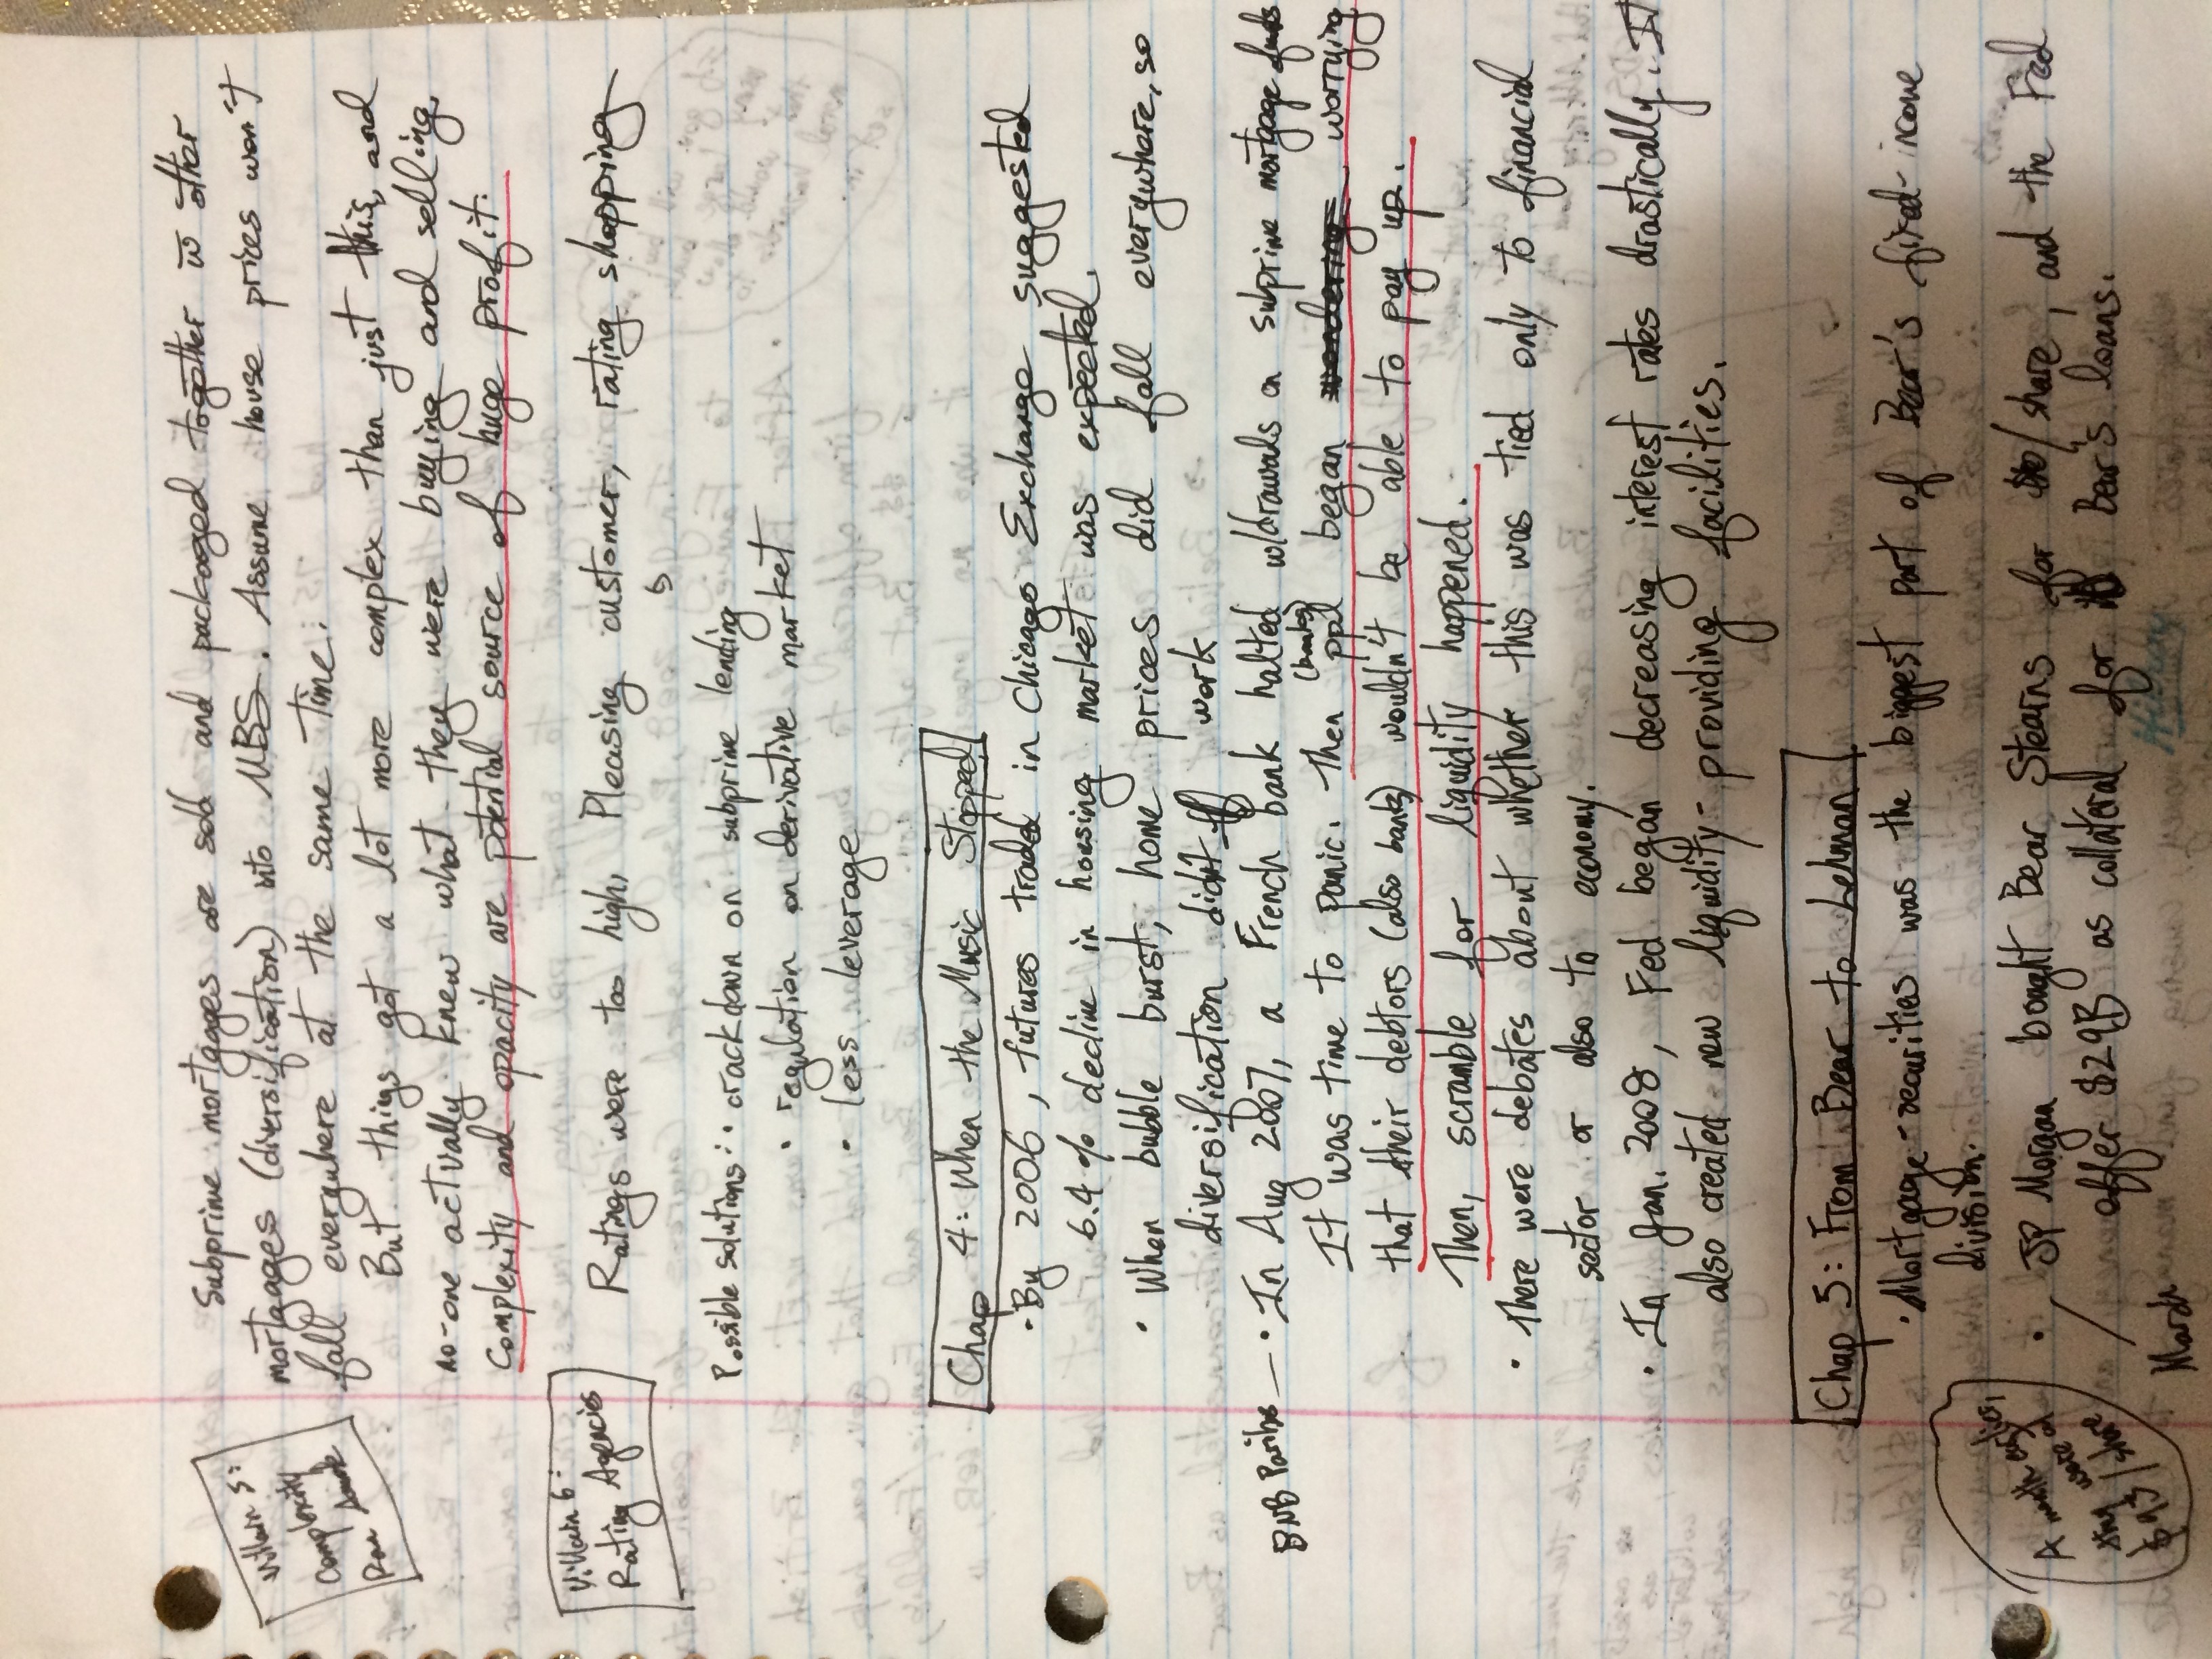 Villain 5:
Complexity
Ran Amok
Subprime mortgages are sold and packaged together w other
mortgages (diversification) into MBS. Assume house prices won't
fall everywhere at the same time.
But things got a lot more complex than just this, and
no-one actually knew what they were buying and selling.
Complexity and opacity are potential source of huge profit.
Villain 6:
Rating Agencies
Ratings were too high, Pleasing customer, rating shopping
Possible solutions: • crackdown on subprime lending
• regulation on derivative market
• less leverage
Chap 4: When the Music Stopped
• By 2006, futures traded in Chicago Exchange suggested
6.4% decline in housing market was expected.
• When bubble burst, home prices did fall everywhere, so
diversification didn't work
BNB Paribas — • In Aug 2007, a French bank halted w/drawals on subprime mortgage funds
It was time to panic. Then ppl (banks) began wondering worrying
that their debtors (also banks) wouldn't be able to pay up.
Then, scramble for liquidity happened.
• There were debates about whether this was tied only to financial
sector or also to economy.
• In Jan. 2008, Fed began decreasing interest rates drastically. It
also created new liquidity-providing facilities.
Chap 5: From Bear to Lehman
• Mortgage-securities was the biggest part of Bear's fixed-income
division.
• JP Morgan bought Bear Stearns for /share, and the Fed
offer $29B as collateral for Bear's loans.
A month earlier,
they were at
$93/share
March